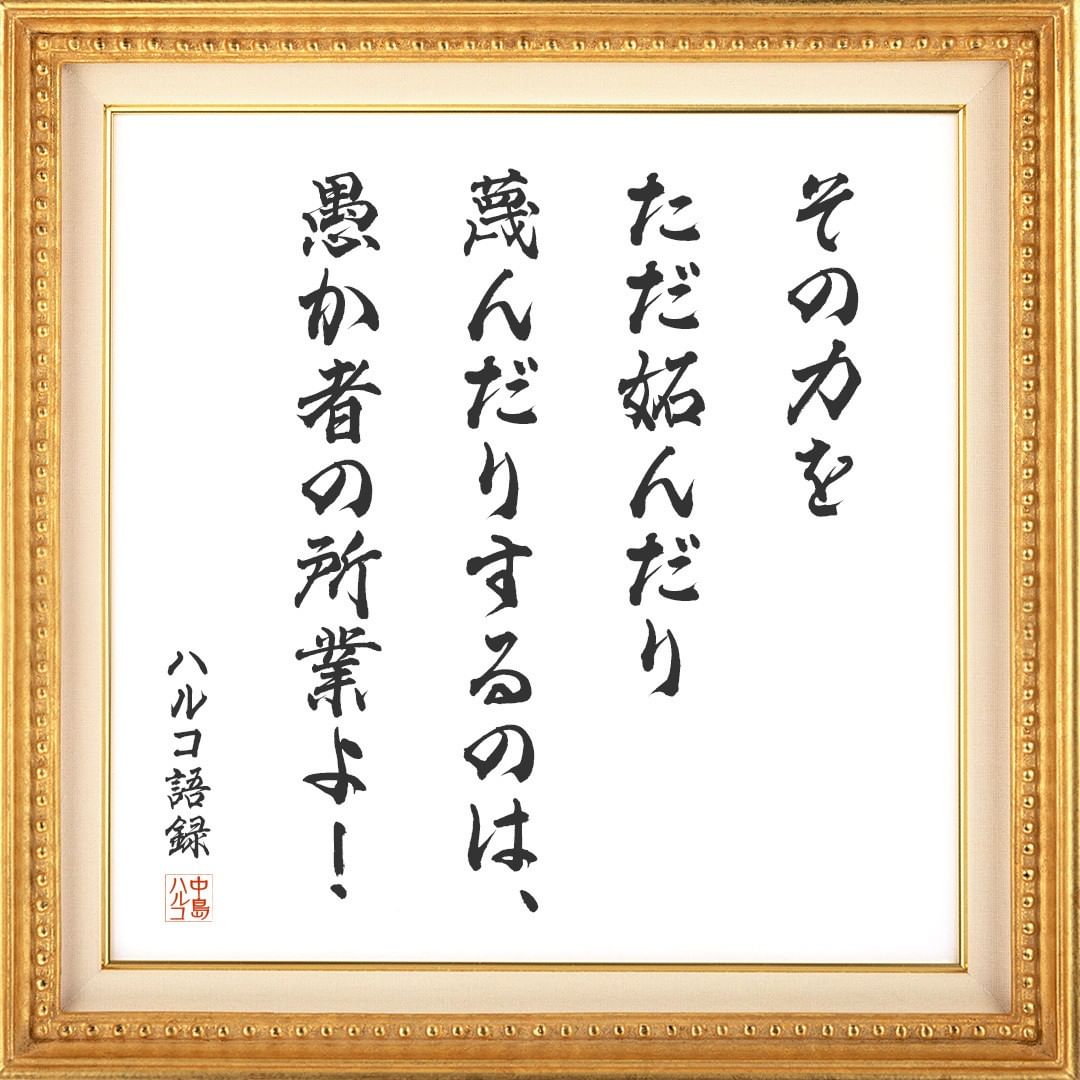 その力を
ただ妬んだり
蔑んだりするのは、
愚か者の所業よ！
ハルコ語録
中島
ハルコ